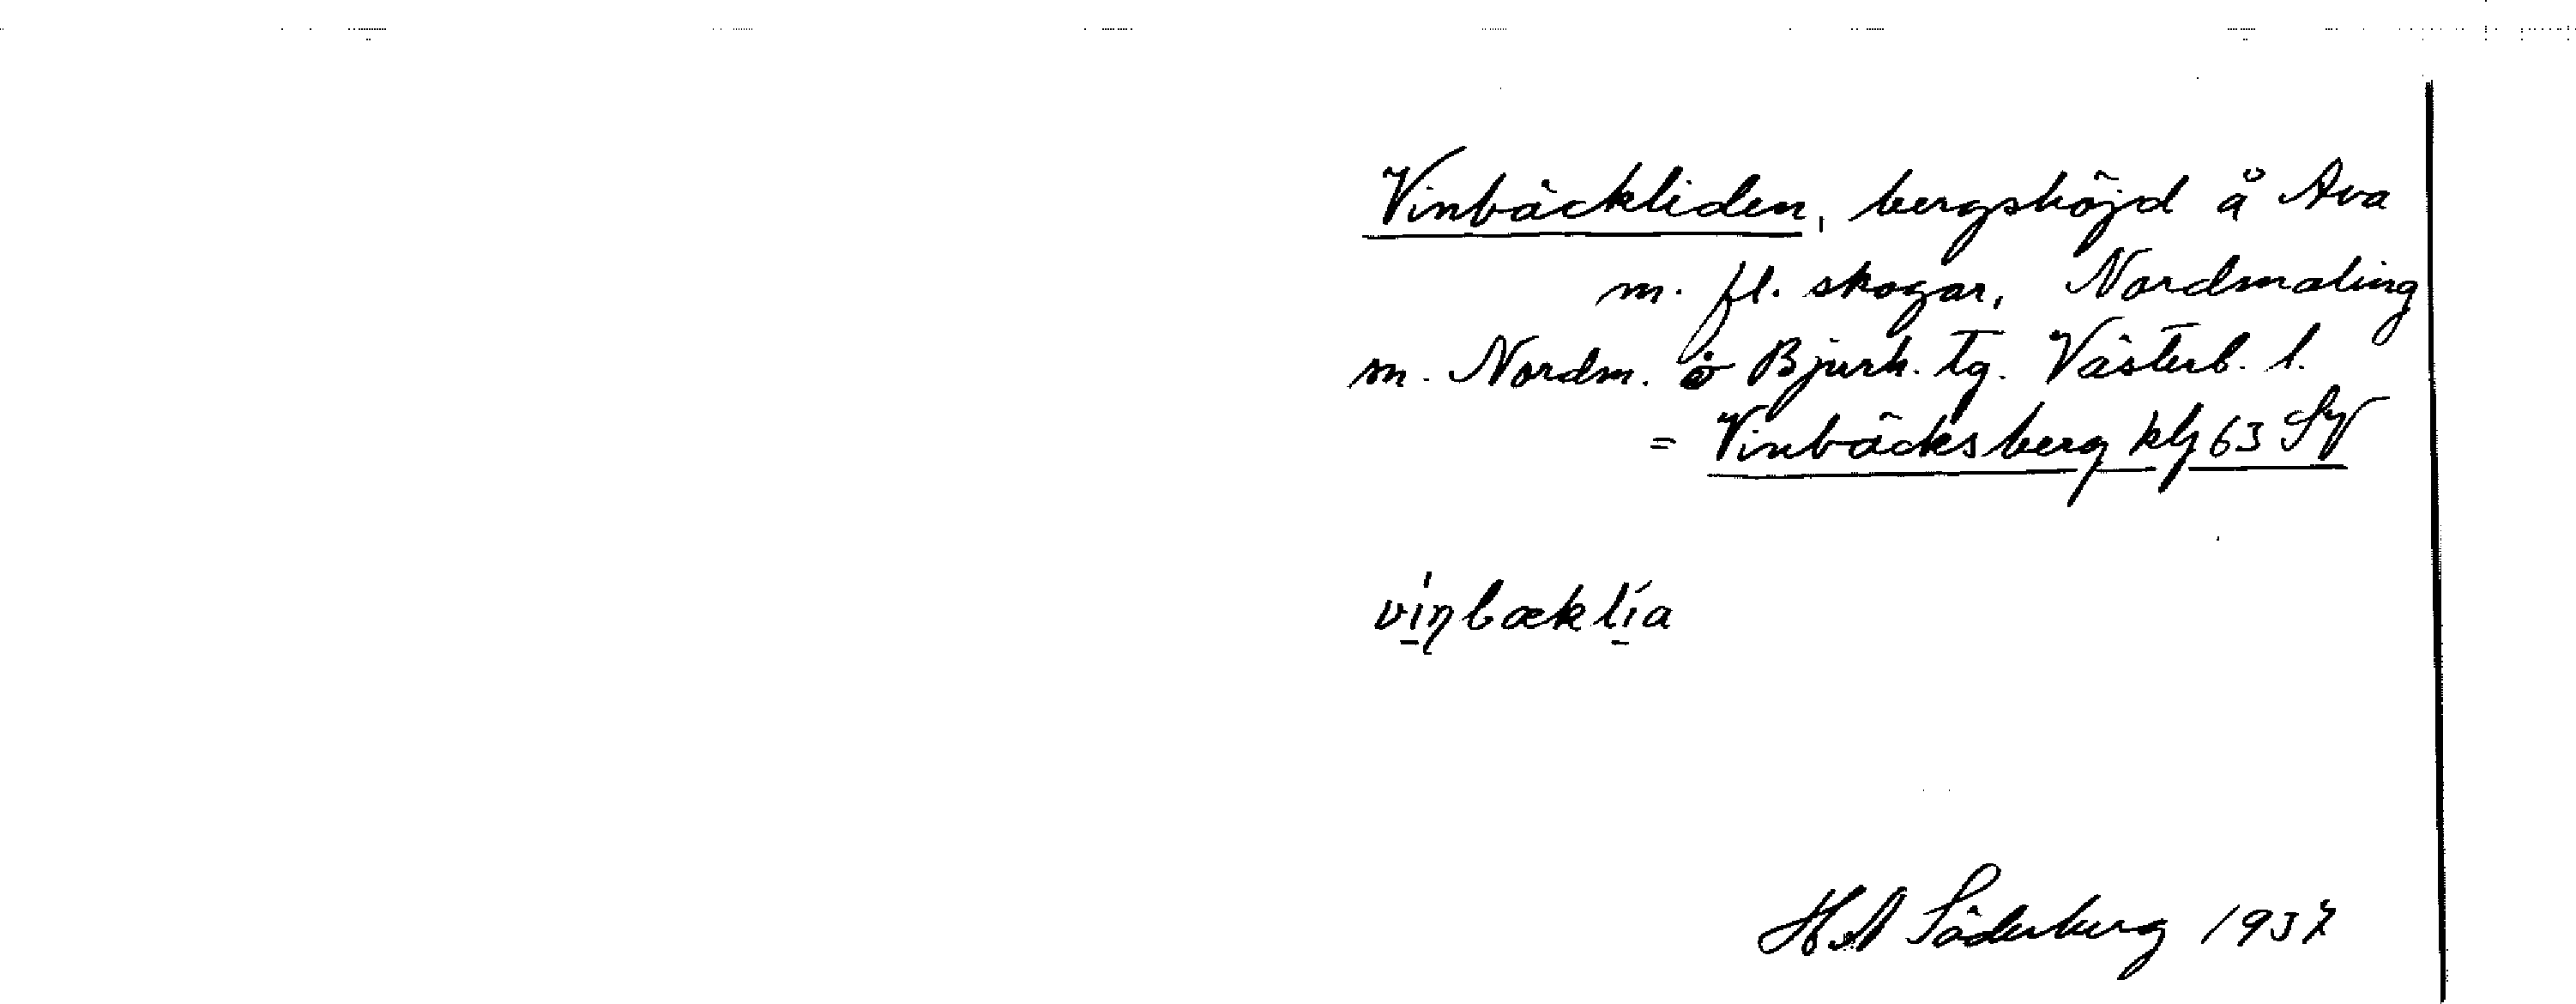 Vinbäckliden, bergshöjd å Ava
m. fl. skogar, Nordmaling
m. Nordm. o Bjurh. tg. Västerb. l.
= Vinbäcksberg klj 63 SV
vinbæklía
H A Söderberg 1937